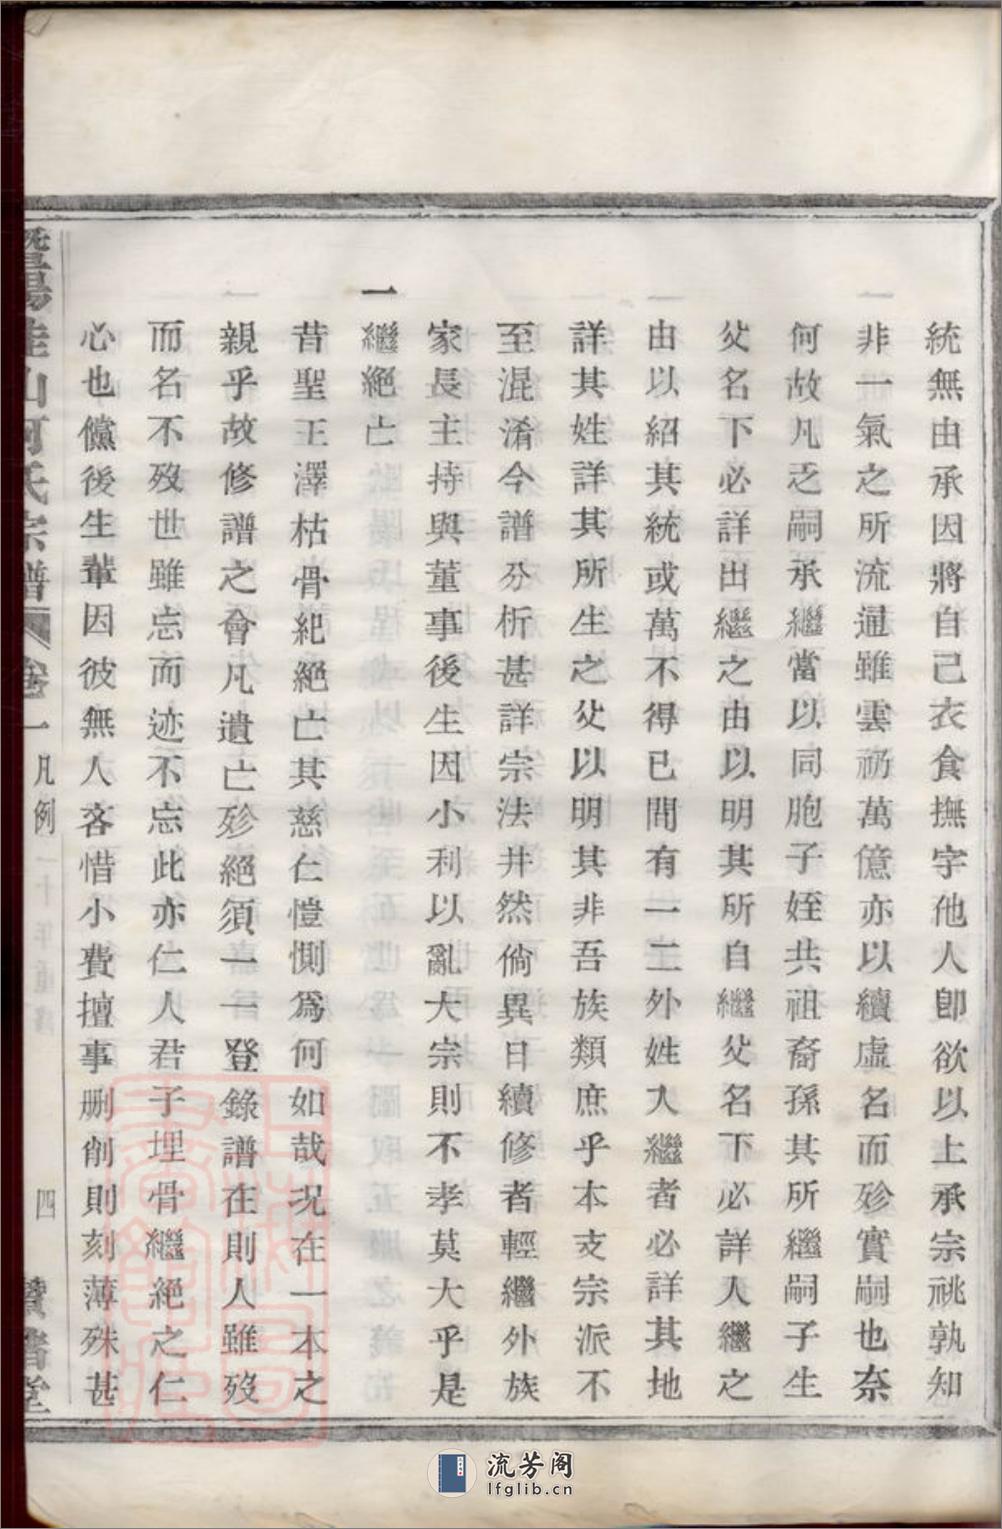 統無由承因將自己衣食撫字他人卽欲以上承宗祧孰知
非一氣之所流通雖雲礽萬億亦以續虛名而殄實嗣也奈
何故凡乏嗣承繼當以同胞子姪共祖裔孫其所繼嗣子生
父名下必詳出繼之由以明其所自繼父名下必詳入繼之
由以紹其統或萬不得已間有一二外姓入繼者必詳其地
詳其姓詳其所生之父以明其非吾族類庶乎本支宗派不
至混淆今譜分析甚詳宗法井然倘異日續修者輕繼外族
家長主持與董事後生因小利以亂大宗則不孝莫大乎是
一繼絕亡
昔聖王澤枯骨紀絕亡其慈仁愷惻爲何如哉况在一本之
親乎故修譜之會凡遺亡殄絕須一一登錄譜在則人雖歿
而名不歿世雖忘而迹不忘此亦仁人君子埋骨繼絕之仁
心也儻後生輩因彼無人吝惜小費擅事刪削則刻薄殊甚
暨陽桂山何氏宗譜 卷一 凡例 四
流芳阁
lfglib.cn